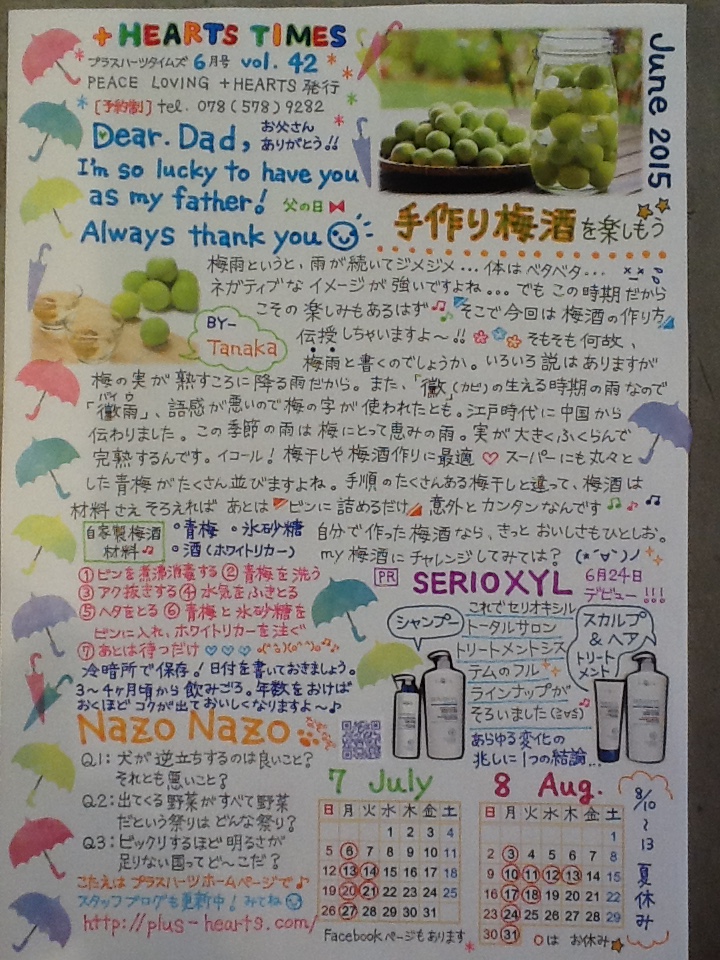 + HEARTS TIMES
プラスハーツタイムズ 6月号 vol. 42
PEACE LOVING +HEARTS 発行
[予約制] tel. 078(578)9282
June 2015
Dear. Dad, お父さん
ありがとう!!
I'm so lucky to have you
as my father! 父の日
Always thank you
手作り梅酒を楽しもう
梅雨というと、雨が続いてジメジメ…体はベタベタ…
ネガティブなイメージが強いですよね…でもこの時期だから
こその楽しみもあるはず♫そこで今回は梅酒の作り方
伝授しちゃいますよ～!! そもそも何故、
BY-
Tanaka
梅雨と書くのでしょうか。いろいろ説はありますが
梅の実が熟すころに降る雨だから。また、「黴」(カビ)の生える時期の雨なので
バイウ
「黴雨」、語感が悪いので梅の字が使われたとも。江戸時代に中国から
伝わりました。この季節の雨は梅にとって恵みの雨。実が大きくふくらんで
完熟するんです。イコール! 梅干しや梅酒作りに最適♡スーパーにも丸々と
した青梅がたくさん並びますよね。手順のたくさんある梅干しと違って、梅酒は
材料さえそろえれば あとはビンに詰めるだけ 意外とカンタンなんです♫♪♫
自家製梅酒
材料♫
•青梅 •氷砂糖
•酒(ホワイトリカー)
自分で作った梅酒なら、きっとおいしさもひとしお。
my梅酒にチャレンジしてみては?
①ビンを煮沸消毒する ②青梅を洗う
③アク抜きする ④水気をふきとる
⑤ヘタをとる ⑥青梅と氷砂糖を
ビンに入れ、ホワイトリカーを注ぐ
⑦あとは待つだけ♡♡♡
冷暗所で保存! 日付を書いておきましょう。
3～4ヶ月頃から飲みごろ。年数をおけば
おくほどコクが出ておいしくなりますよ～♪
PR SERIOXYL 6月24日
デビュー!!!
シャンプー
これでセリオキシル
トータルサロン
トリートメントシス
テムのフル
ラインナップが
そろいました
あらゆる変化の
兆しに1つの結論…
スカルプ
&ヘア
トリート
メント
Nazo Nazo
Q1: 犬が逆立ちするのは良いこと?
それとも悪いこと?
Q2: 出てくる野菜がすべて野菜
だという祭りはどんな祭り?
Q3: ビックリするほど明るさが
足りない国ってど～こだ?
こたえはプラスハーツホームページで♪
スタッフブログも更新中! みてね
http://plus-hearts.com/
7 July
日 月 火 水 木 金 土
1 2 3 4
5 6 7 8 9 10 11
12 13 14 15 16 17 18
19 20 21 22 23 24 25
26 27 28 29 30 31
Facebookページもあります
8 Aug.
日 月 火 水 木 金 土
1
2 3 4 5 6 7 8
9 10 11 12 13 14 15
16 17 18 19 20 21 22
23 24 25 26 27 28 29
30 31 ○は お休み
8/10～13 夏休み